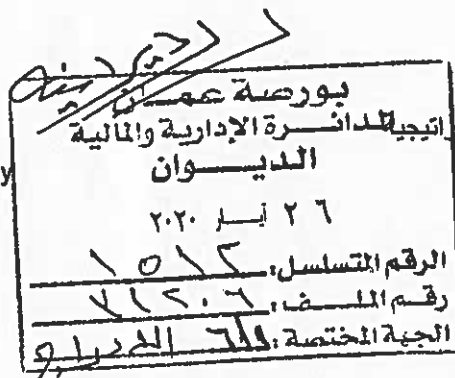 بورصة عمان
اتيجية الدائرة الإدارية والمالية
الديوان
y
٢٦ أيار ٢٠٢٠
الرقم المتسلسل: ١٥١٢
رقم الملف:
الجهة المختصة: